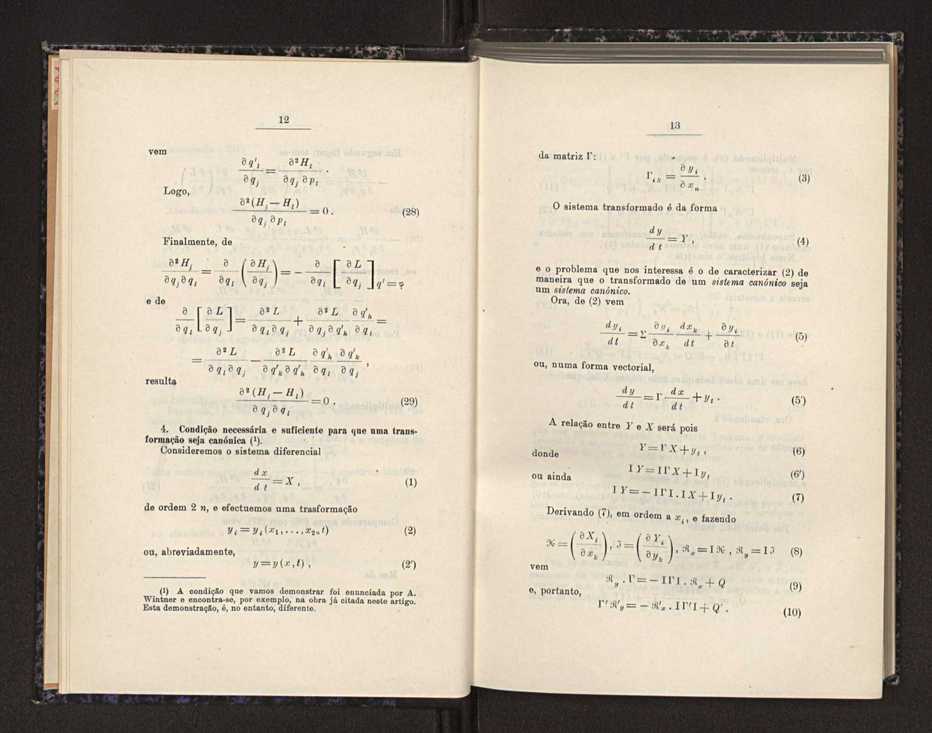 12
vem
∂q'ᵢ/∂qⱼ = ∂²Hᵢ/∂qⱼ∂pᵢ .
Logo,
∂²(Hⱼ — Hᵢ)/∂qⱼ∂pᵢ = 0 . (28)
Finalmente, de
∂²Hⱼ/∂qⱼ∂qᵢ = ∂/∂qᵢ (∂Hⱼ/∂qⱼ) = — ∂/∂qᵢ [∂L/∂qⱼ] q' = φ
e de
∂/∂qᵢ [∂L/∂qⱼ] = ∂²L/∂qᵢ∂qⱼ + ∂²L/∂qⱼ∂q'ₕ ∂q'ₕ/∂qᵢ =
= ∂²L/∂qᵢ∂qⱼ — ∂²L/∂q'ₖ∂q'ₕ ∂q'ₕ/∂qᵢ ∂q'ₖ/∂qⱼ ,
resulta
∂²(Hⱼ — Hᵢ)/∂qⱼ∂qᵢ = 0 . (29)
4. Condição necessária e suficiente para que uma trans-
formação seja canónica (¹).
Consideremos o sistema diferencial
dx/dt = X , (1)
de ordem 2 n, e efectuemos uma trasformação
yᵢ = yᵢ (x₁, . . . , x₂ₙ, t) (2)
ou, abreviadamente,
y = y (x, t) , (2')
(1) A condição que vamos demonstrar foi enunciada por A.
Wintner e encontra-se, por exemplo, na obra já citada neste artigo.
Esta demonstração, é, no entanto, diferente.
13
da matriz Γ:
= ∂yᵢ/∂xₙ . (3)
O sistema transformado é da forma
dy/dt = Y , (4)
e o problema que nos interessa é o de caracterizar (2) de
maneira que o transformado de um sistema canónico seja
um sistema canónico.
Ora, de (2) vem
dyᵢ/dt = Σ ∂yᵢ/∂xₖ dxₖ/dt + ∂yᵢ/∂t (5)
ou, numa forma vectorial,
dy/dt = Γ dx/dt + yₜ . (5')
A relação entre Y e X será pois
Y = Γ X + yₜ , (6)
donde
I Y = I Γ X + I yₜ (6')
ou ainda
I Y = — I Γ I . I X + I yₜ . (7)
Derivando (7), em ordem a xᵢ, e fazendo
= (∂Xᵢ/∂xₖ) , = (∂Yᵢ/∂yₖ) , (8)
vem
ℜᵧ . Γ = — I Γ I . ℜₓ + Q (9)
e, portanto,
Γ' ℜ'ᵧ = — ℜ'ₓ . I Γ' I + Q' . (10)